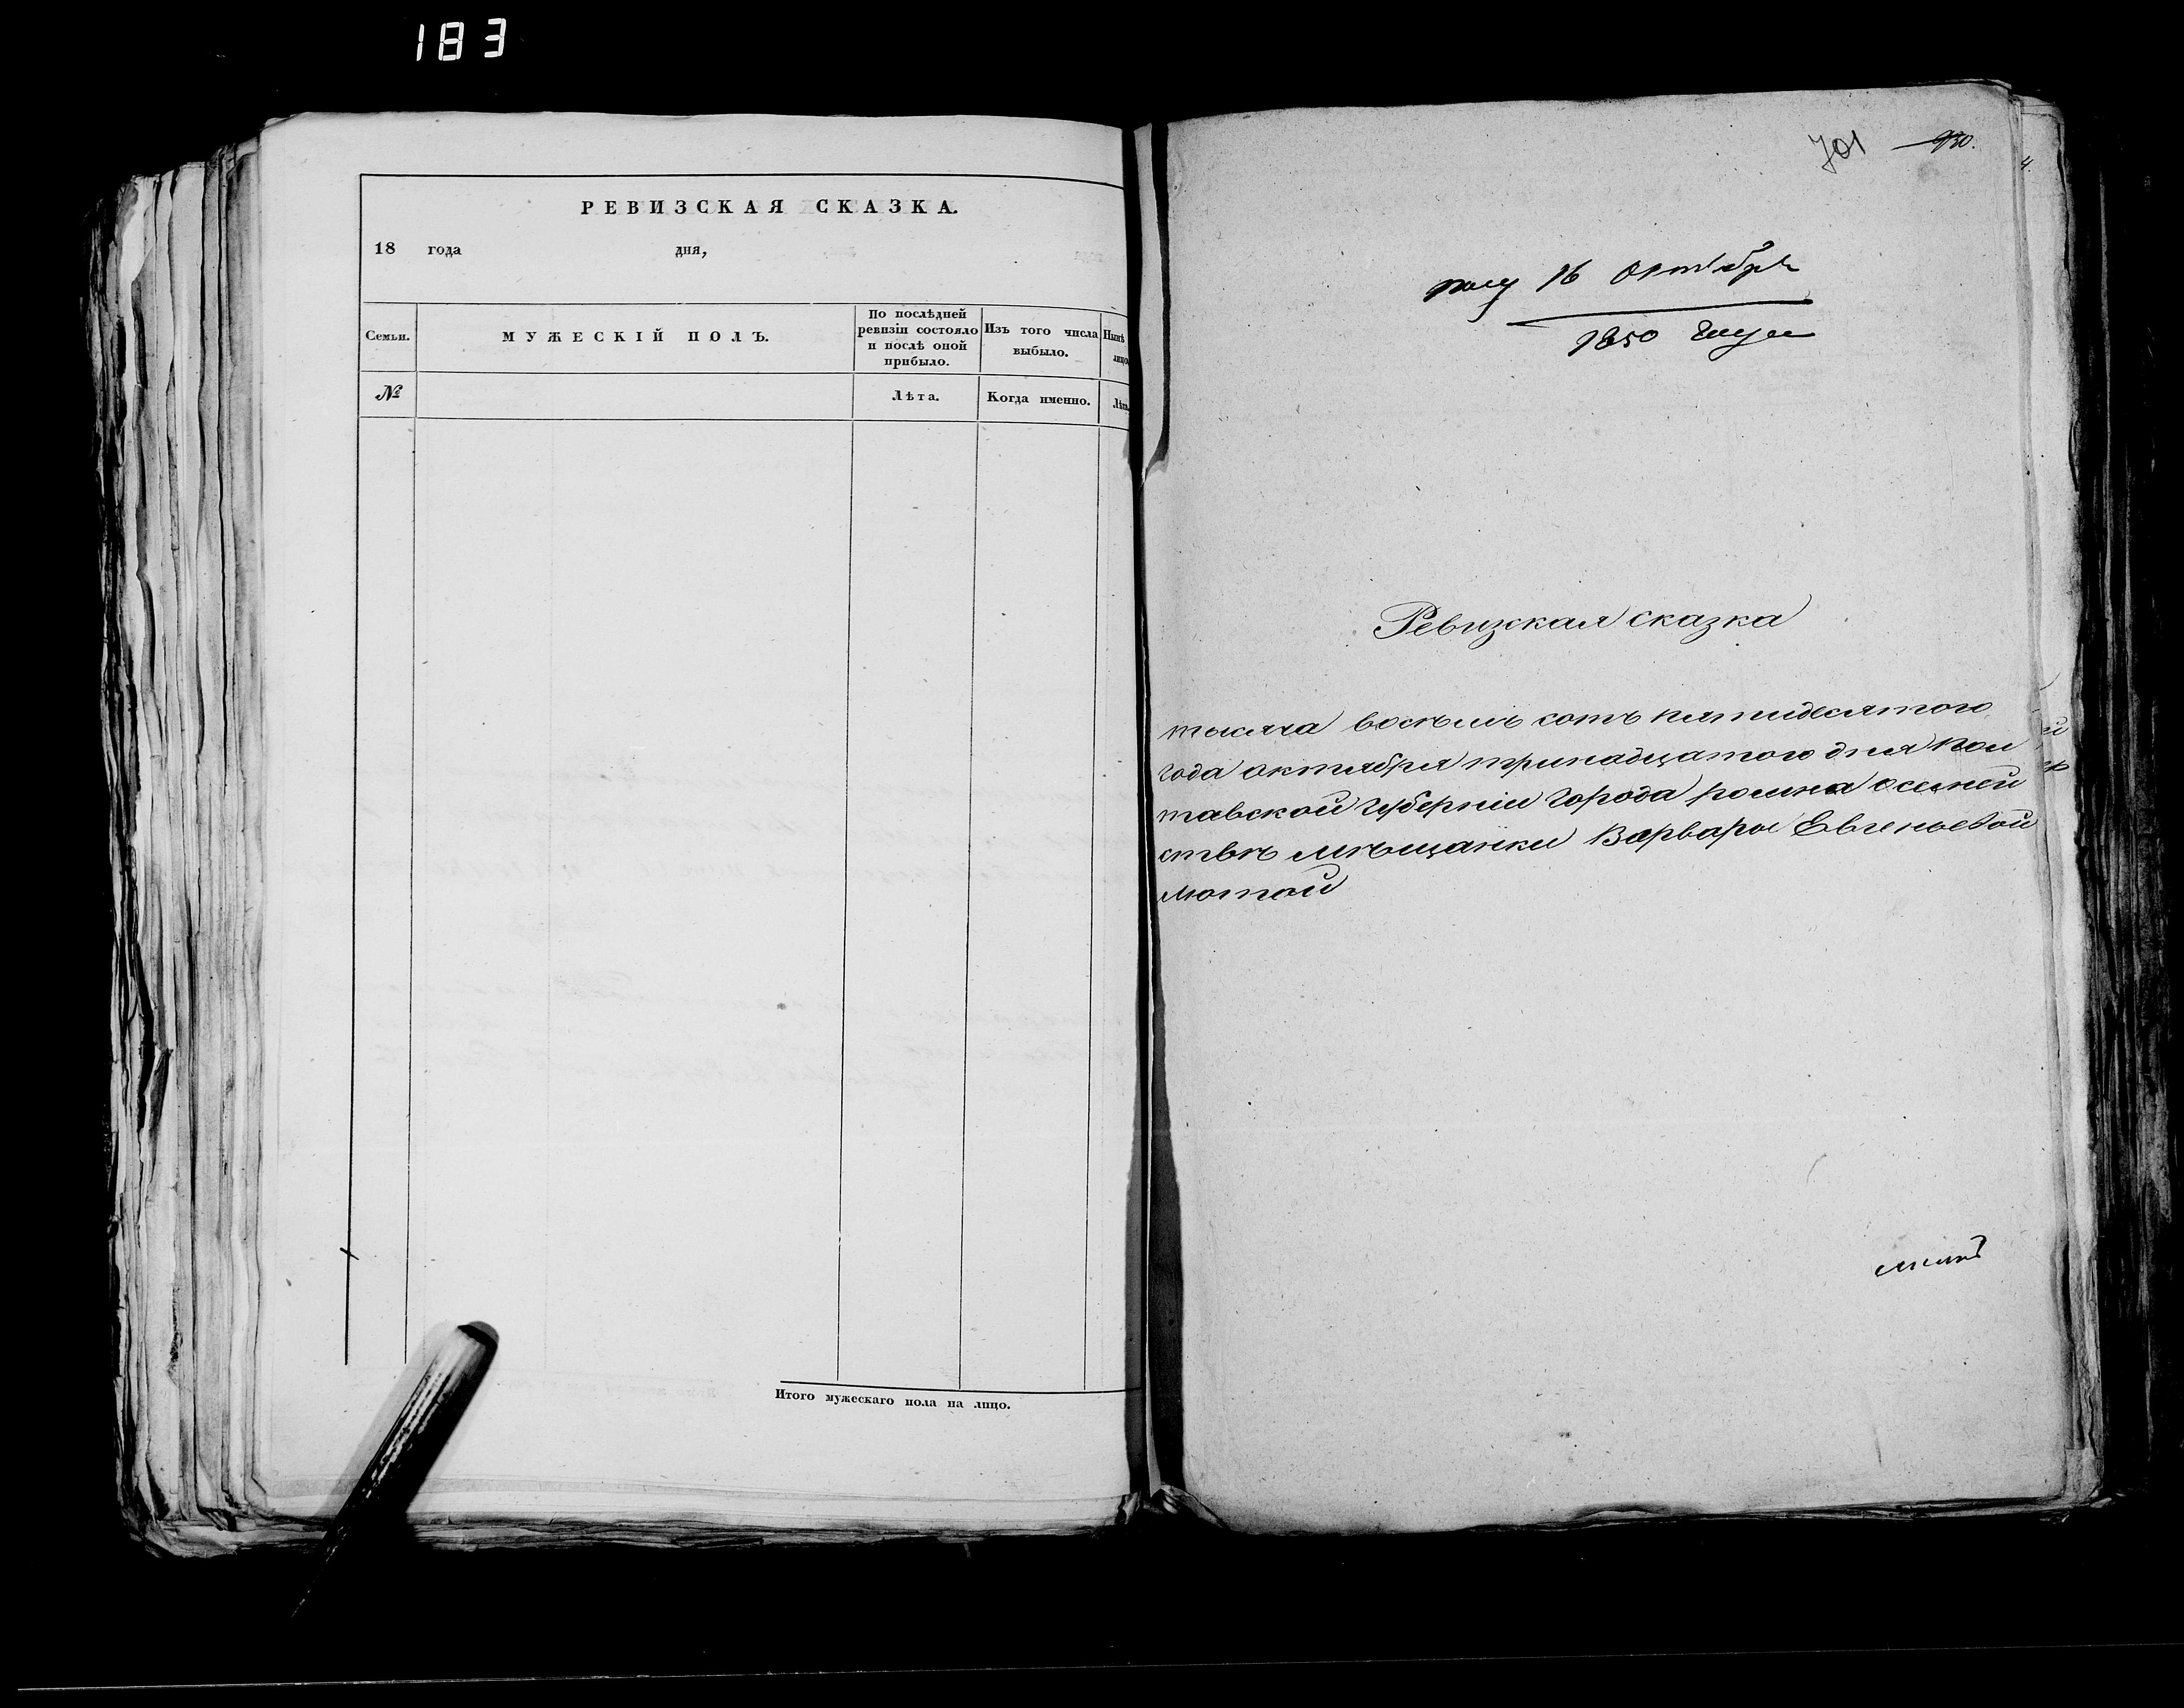 183
РЕВИЗСКАЯ СКАЗКА.
18 года дня,
Семьи.
МУЖЕСКІЙ ПОЛЪ.
По послѣдней
ревизіи состояло
и послѣ оной
прибыло.
Изъ того числа
выбыло.
Нынѣ
лицо
№
Лѣта.
Когда именно.
Лѣта
Итого мужескаго пола на лицо.
701
930.
полу 16 Октября
1850 года
Ревизкая сказка
тысяча восѣмь сотъ пятидесятого
года октября тринадцатого дня пол
тавской губерніи города ромна о семей
ствѣ мѣщанки Варвары Евгеньевой
лютой